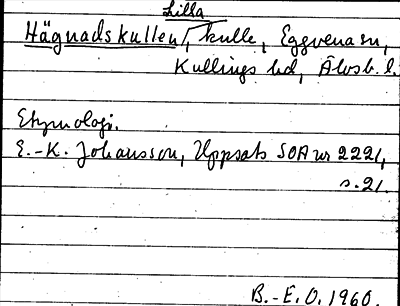 Lilla
Hägnadskullen, kulle, Eggvena sn,
Kullings hd, Älvsb. l.
Etymologi.
E.-K. Johansson, Uppsats SOA nr 2221,
s. 21
B.-E.O. 1960.